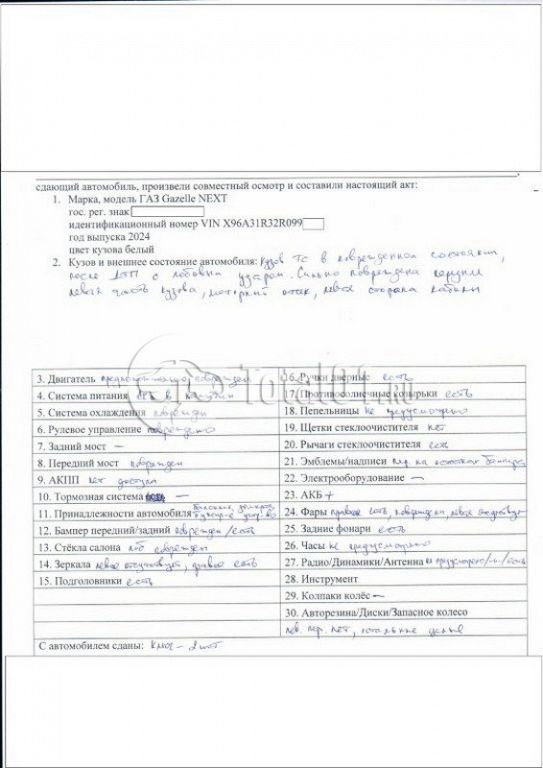 сдающий автомобиль, произвели совместный осмотр и составили настоящий акт:
1. Марка, модель ГАЗ Gazelle NEXT
гос. рег. знак
идентификационный номер VIN X96A31R32R099
год выпуска 2024
цвет кузова белый
2. Кузов и внешнее состояние автомобиля: Кузов ТС в поврежденном состоянии,
после ДТП с лобовым ударом. Сильно повреждена передняя
левая часть кузова, моторный отсек, левая сторона кабины
Total01.ru
3. Двигатель предположительно поврежден
16. Ручки дверные есть
4. Система питания
17. Противосолнечные козырьки есть
5. Система охлаждения поврежд
18. Пепельницы не предусмотрено
6. Рулевое управление повреждено
19. Щетки стеклоочистителя нет
7. Задний мост –
20. Рычаги стеклоочистителя есть
8. Передний мост поврежден
21. Эмблемы/надписи на
9. АКПП нет доступа
22. Электрооборудование –
10. Тормозная система –
23. АКБ +
11. Принадлежности автомобиля
24. Фары правая есть, повреждена, левая отсутствует
12. Бампер передний/задний поврежден/есть
25. Задние фонари есть
13. Стёкла салона лоб поврежден
26. Часы не предусмотрено
14. Зеркала левое отсутствует, правое есть
27. Радио/Динамики/Антенна не предусмотрено/–/есть
15. Подголовники есть
28. Инструмент
29. Колпаки колёс –
30. Авторезина/Диски/Запасное колесо
лев. пер. нет, остальные целые
С автомобилем сданы: ключ – 2 шт